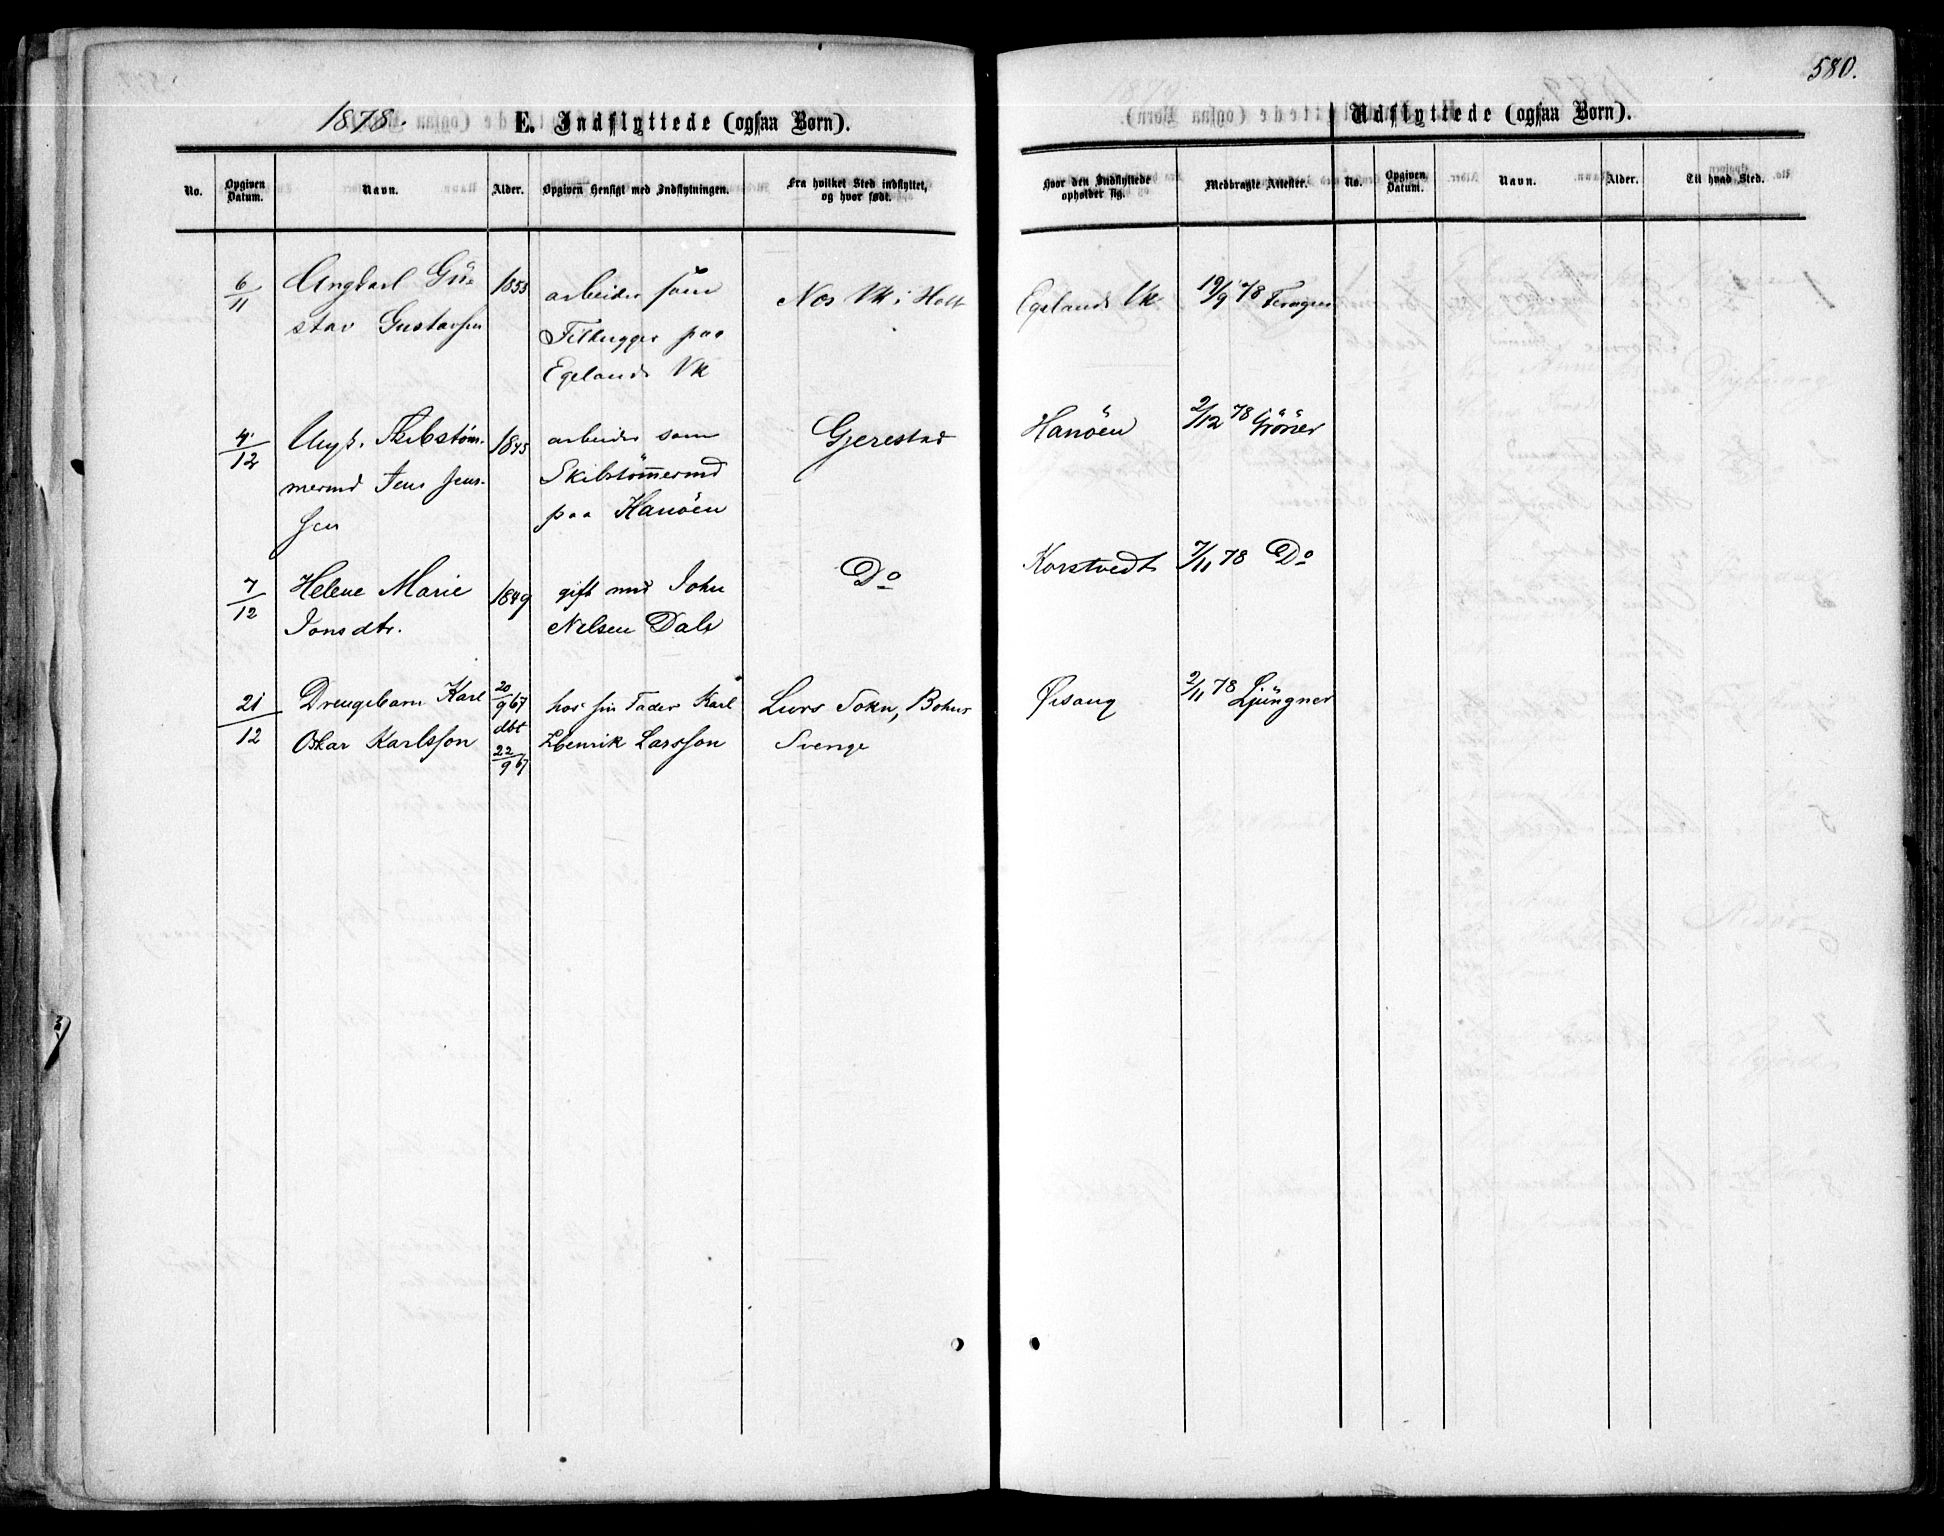 580.
1878. E. Indflyttede (ogsaa Børn). Udflyttede (ogsaa Børn).
No. Opgiven Datum. Navn. Alder. Opgiven Hensigt med Indflytningen. Fra hvilket Sted indflyttet, og hvor født. Hvor den Indflyttede opholder sig. Medbragte Attester. No. Opgiven Datum. Navn. Alder. Til hvad Sted.
6/11 Ungkarl Gü- 1853 arbeider som Nes Vk i Holt Egelands Vk 19/9 78
stav Gustavsen Filhugger paa
Egelands Vk
4/12 Ungk. Skibstøm- 1845 arbeider som Gjerestad Hanöen 2/12 78
mermd Jens Jens- Skibstömermd
sen paa Hanöen
7/12 Helene Marie 1849 gift med John Do Korstvedt 7/11 78 Do
Jonsdtr. Nelsen Dals
21/12 Drengebarn Karl 20/9 67 hos sin Fader Karl Lurs Sokn, Bohus Øisang 2/11 78 Ljüngner
Oskar Karlsson dbt 22/9 67 Henrik Larsson Sverige